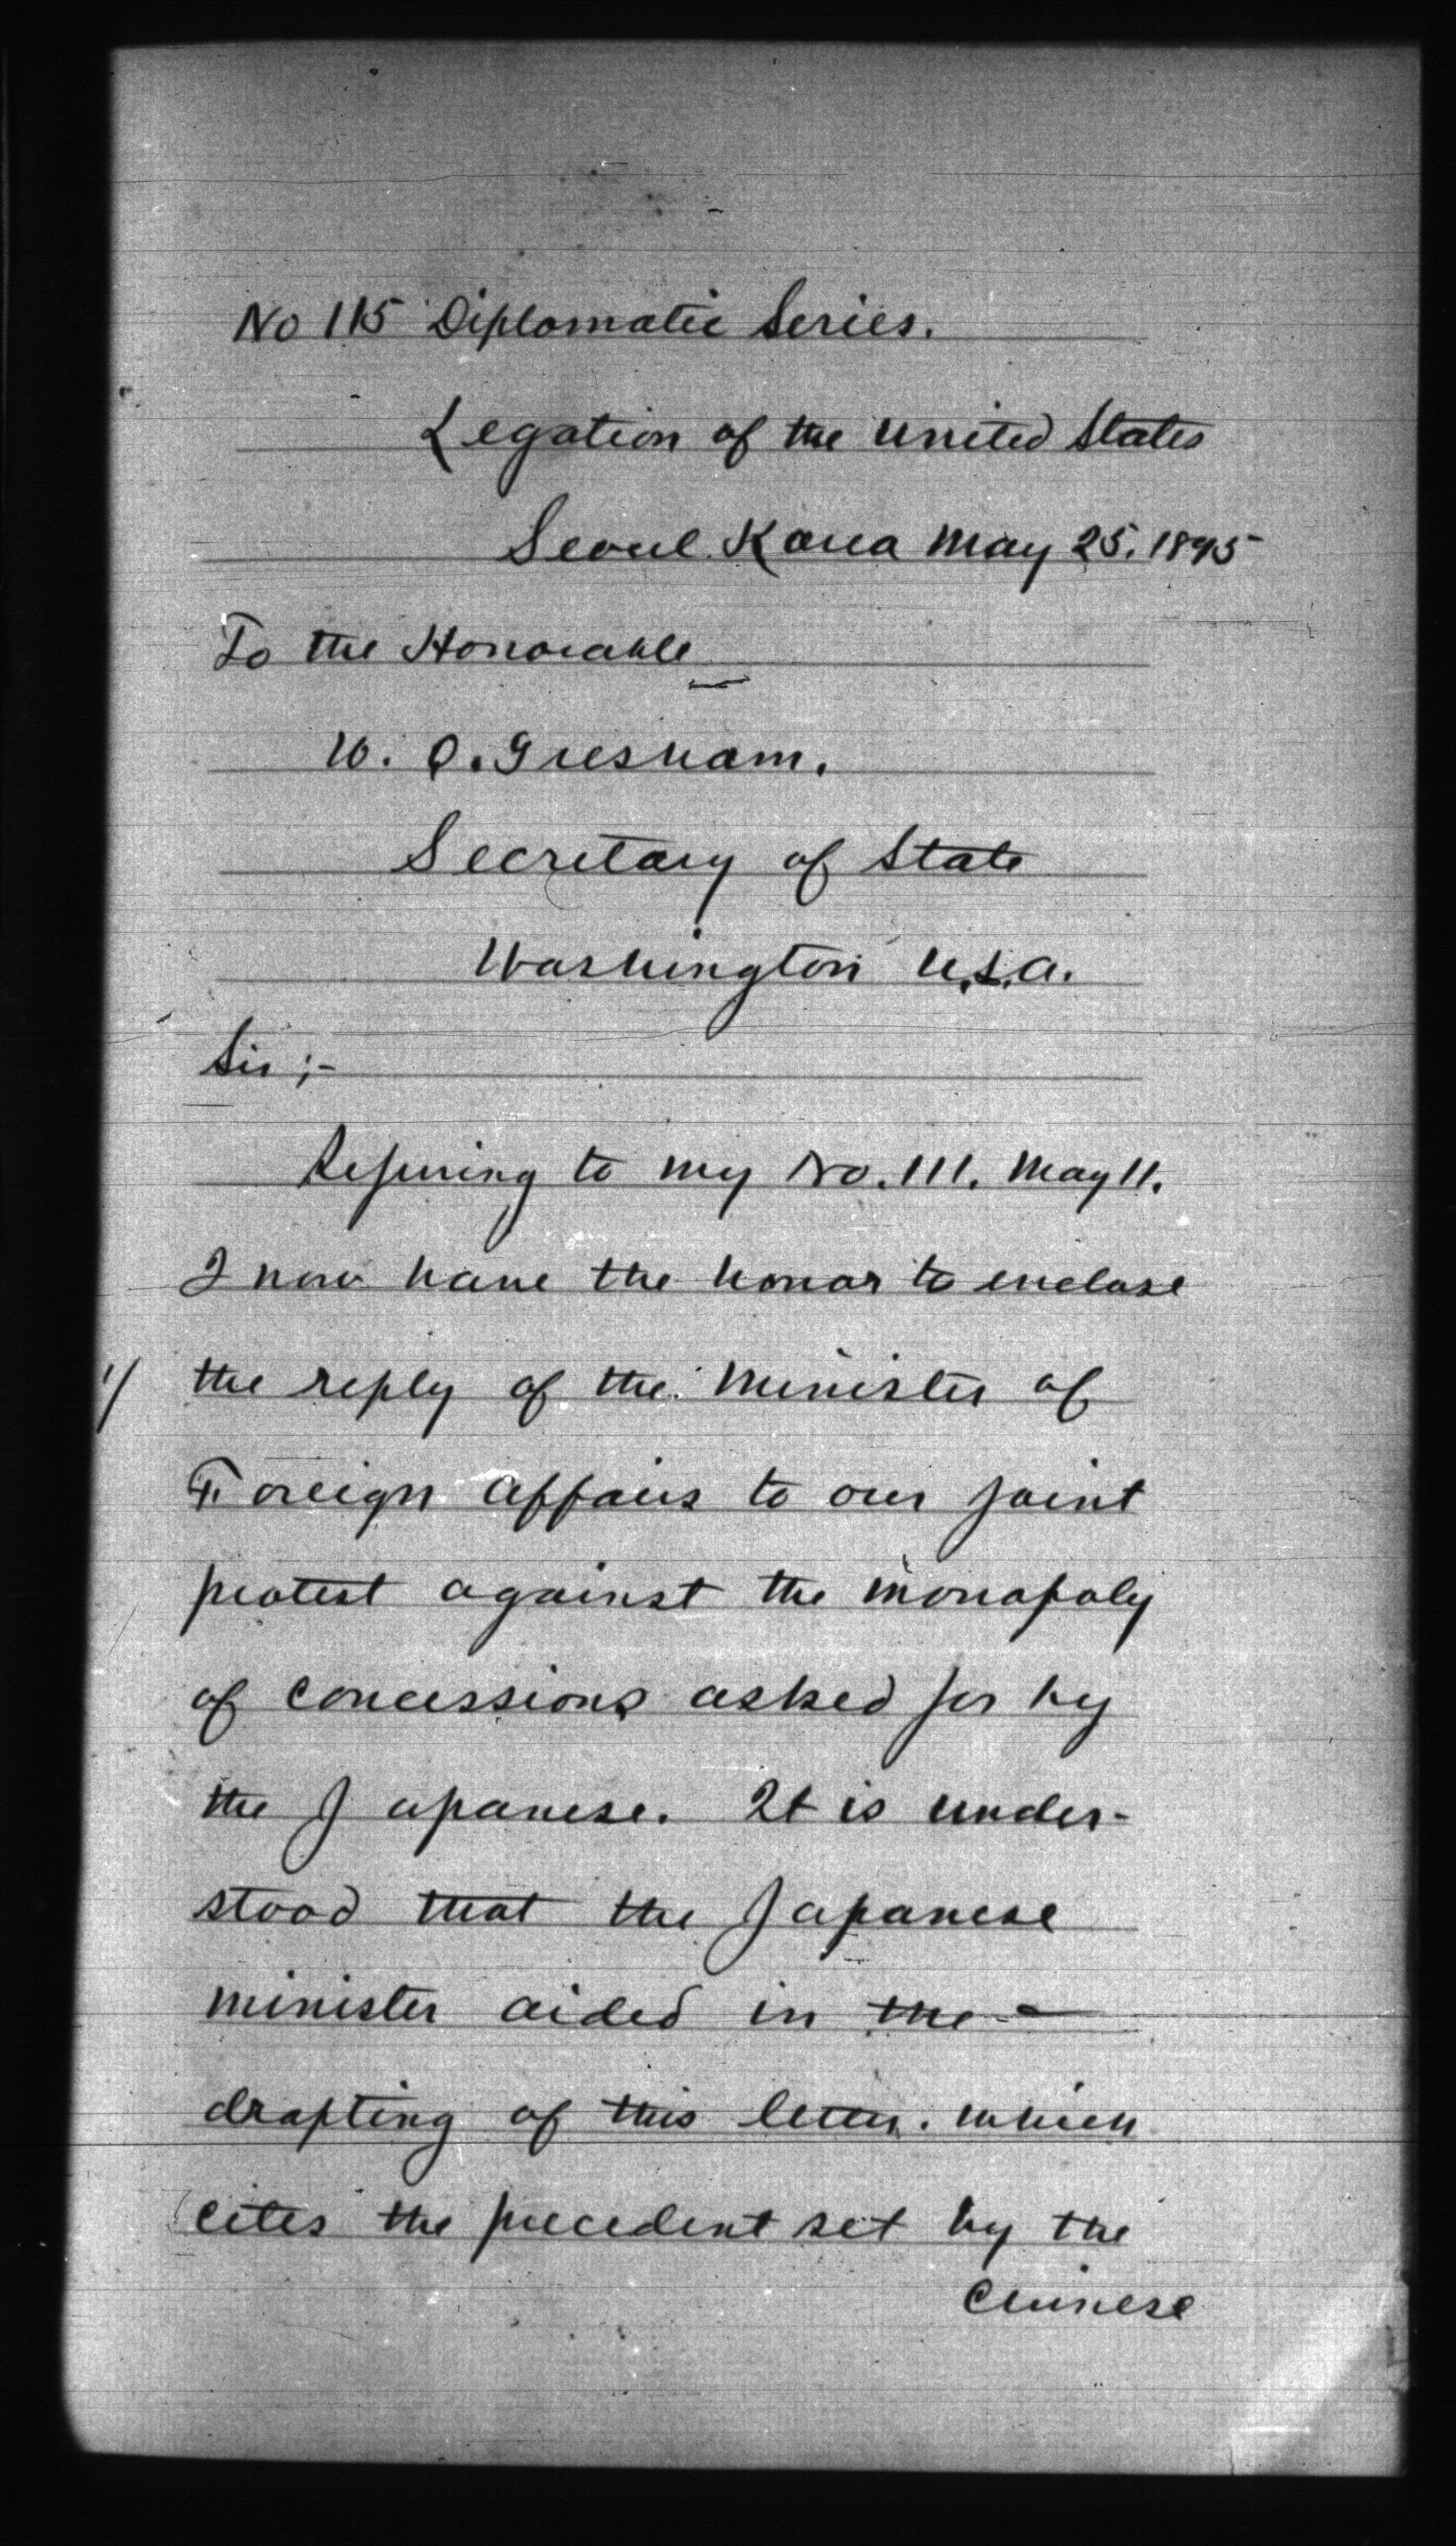 No 115 Diplomatic Series.
Legation of the United States
Seoul Korea May 25. 1895
To the Honorable
W. Q. Gresham.
Secretary of State
Washington U.S.A.
Sir;-
Referring to my No. 111. May 11.
I now have the honor to enclose
1/ the reply of the Minister of
Foreign Affairs to our joint
protest against the monopoly
of concessions asked for by
the Japanese. It is under-
stood that the Japanese
minister aided in the -
drafting of this letter. which
cites the precedent set by the
Chinese